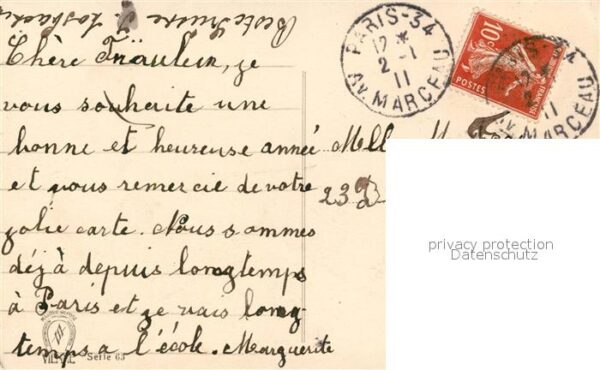 Chère Fräulein, je
vous souhaite une
bonne et heureuse année
et vous remercie de votre
jolie carte. Nous sommes
déjà depuis longtemps
à Paris et je vais long
temps a l'école. Marguerite
Melle
23
PARIS-34
12 *
2 -1
11
AV. MARCEAU
10c
POSTES
privacy protection
Datenschutz
Serie 63